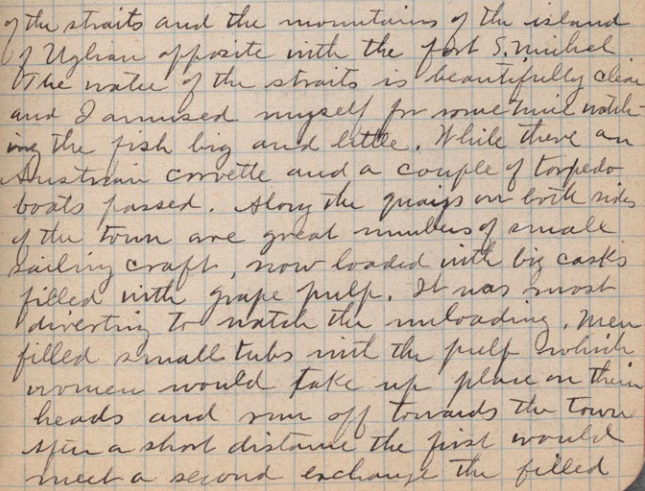 of the straits and the mountains of the island
of Uglian opposite with the fort S. Michel
The water of the straits is beautifully clear
and I amused myself for some time watch-
ing the fish big and little. While there an
Austrian corvette and a couple of torpedo
boats passed. Along the quays on both sides
of the town are great numbers of small
sailing craft, now loaded with big casks
filled with grape pulp. It was most
diverting to watch the unloading. Men
filled small tubs with the pulp which
women would take up place on their
heads and run off towards the town
After a short distance the first would
meet a second exchange the filled